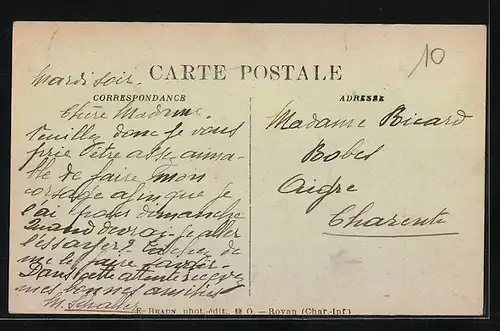 10
Mardi soir.
CARTE POSTALE
CORRESPONDANCE
Chère Madame.
Veuillez donc je vous
prie d'être assez aima-
ble de faire mon
corsage afin que je
l'ai pour dimanche
Quand devrai-je aller
l'essayer? de
me le faire savoir.
Dans cette attente recevez
mes bonnes amitiés
M.
ADRESSE
Madame Ricard
Robes
Aigre
Charente
E. BRAUN, phot.-édit. O. - Royan (Char.-Inf)